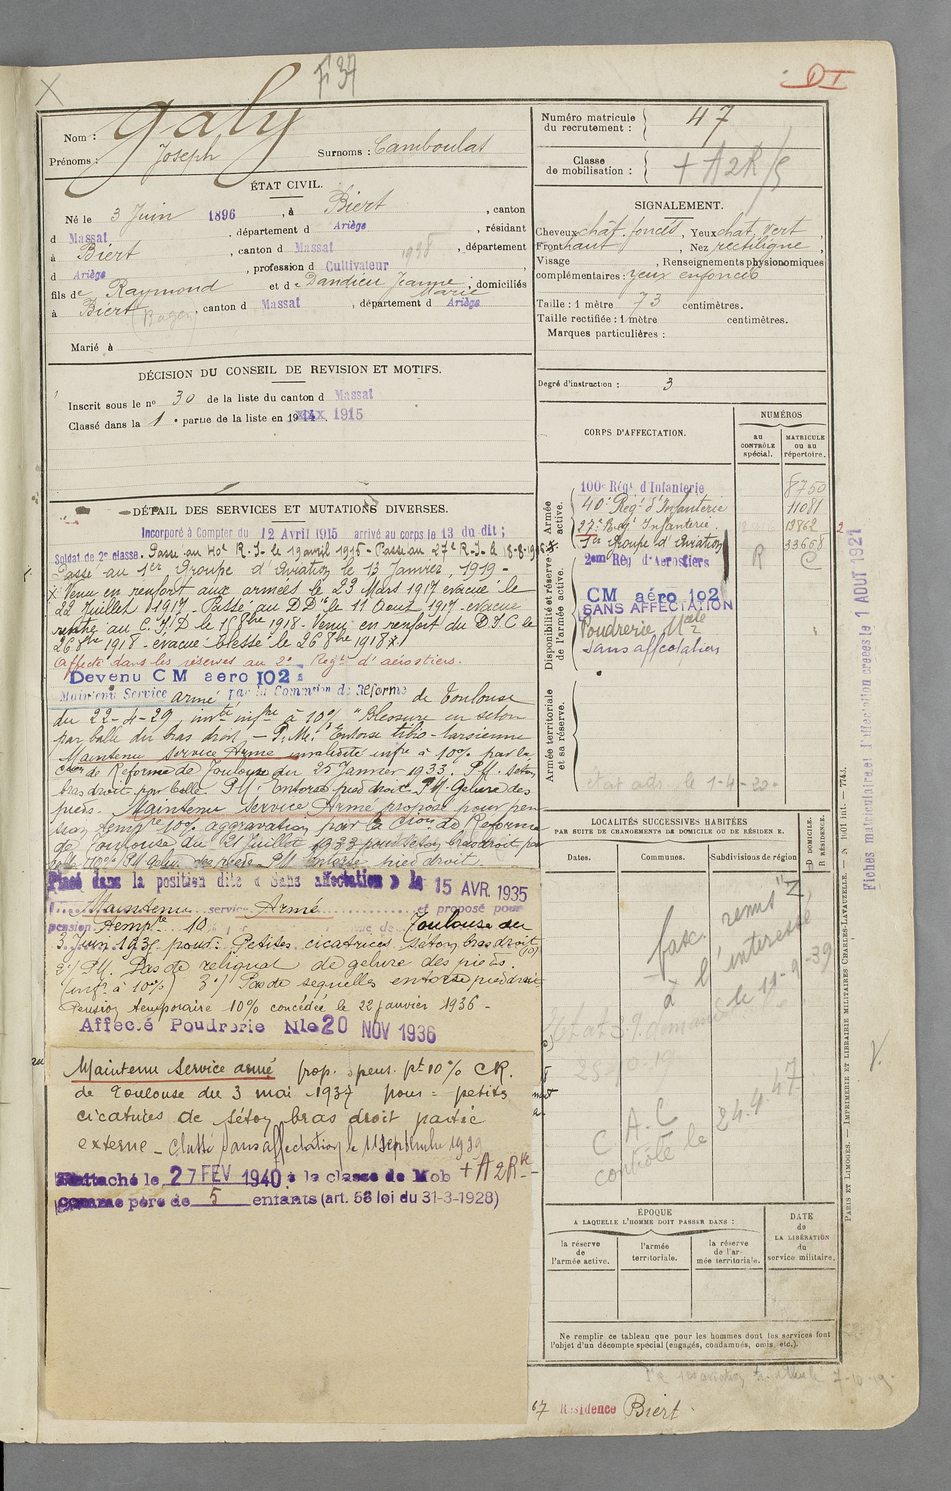 F 37
DI
Nom : Galy
Prénoms : Joseph Surnoms : Camboulas
ÉTAT CIVIL.
Né le 3 Juin 1896, à Biert, canton
d Massat, département d Ariège, résidant
à Biert, canton d Massat, département
d Ariège, profession d Cultivateur
fils de Raymond et de Dandieu Jeanne Marie, domiciliés
à Biert, canton d Massat, département d Ariège
Marié à
DÉCISION DU CONSEIL DE REVISION ET MOTIFS.
Inscrit sous le nº 30 de la liste du canton d Massat
Classé dans la 1e partie de la liste en 1915
DÉTAIL DES SERVICES ET MUTATIONS DIVERSES.
Incorporé à Compter du 12 Avril 1915 arrivé au corps le 13 du dit ;
Soldat de 2e classe. Passe au 40e R.I. le 19 avril 1915 - Passe au 27e R.I. le
Passe au 1er Groupe d'Aviation le 13 Janvier, 1919 -
x Venu en renfort aux armées le 23 Mars 1917 evacué le
22 Juillet 1917 - Passé au D.D. le 11 Aout 1917 - evacué
rentré au C.I.D. le 15 8bre 1918 - Venu en renfort du D.I.C le
26 8bre 1918 - evacué blessé le 26 8bre 1918 x/
affecté dans les réserves au 2e Regt d'aérostiers.
Devenu CM aero 102
Maintenu Service armé par la Commion de Réforme de Toulouse
du 22-4-29 invté infre à 10% "Blessure en seton
par balle du bras droit - P.M.I. Entorse tibio-tarsienne
Maintenu service Armé invalidité infre à 10% par la
Cion de Réforme de Toulouse du 25 Janvier 1933. P.M. seton
bras droit par balle P.M. Entorse pied droit P.M. Gelure des
pieds. Maintenu Service Armé proposé pour pen
sion tempre 10% aggravation par la Cion de Réforme
de Toulouse du 21 Juillet 1933 pour seton bras droit par
balle 10% P.M. Gelure des pieds P.M. Entorse pied droit.
Placé dans la position dite « Sans affectation » le 15 AVR. 1935
Maintenu service Armé et proposé pour
pension tempre 10 Toulouse du
3 Juin 1935 pour : Petites cicatrices séton bras droit
2°/ P.M. Pas de reliquat de gelure des pieds.
(infre à 10%) 3°/ Pas de sequelles entorse pied droit
Pension temporaire 10% concédée le 22 janvier 1936 -
Affecté Poudrerie Nle 20 NOV 1936
Maintenu Service armé prop. pens. pt 10% CR.
de Toulouse du 3 mai 1937 pour = petites
cicatrices de séton bras droit partie
externe - Classé sans affectation le 11 Septembre 1939
Rattaché le 27 FEV 1940 à la classe de Mob + A2R
comme père de 5 enfants (art. 58 loi du 31-3-1928)
Numéro matricule du recrutement : 47
Classe de mobilisation : + A2R/5
SIGNALEMENT.
Cheveux chât. foncés, Yeux chat. vert,
Front haut, Nez rectiligne,
Visage , Renseignements physionomiques
complémentaires : yeux enfoncés
Taille : 1 mètre 73 centimètres.
Taille rectifiée : 1 mètre centimètres.
Marques particulières :
Degré d'instruction : 3
CORPS D'AFFECTATION.
NUMÉROS
au contrôle spécial.
matricule ou au répertoire.
Armée active.
100e Régt d'Infanterie 8750
40e Régt d'Infanterie 11081
27e Régt Infanterie. 13862
1er Groupe d'Aviation 33668
Disponibilité et réserve de l'armée active.
2eme Rég d'Aerostiers R C
CM aéro 102
SANS AFFECTATION
Poudrerie Nale
Sans affectation
Armée territoriale et sa réserve.
LOCALITÉS SUCCESSIVES HABITÉES
PAR SUITE DE CHANGEMENTS DE DOMICILE OU DE RÉSIDENCE.
Dates. Communes. Subdivisions de région
D DOMICILE.
R RÉSIDENCE.
fasc. remis "Z"
à l'interessé
le 19-9-39
C.A.C
contrôle le 24.4.47
ÉPOQUE
À LAQUELLE L'HOMME DOIT PASSER DANS :
la réserve de l'armée active.
l'armée territoriale.
la réserve de l'armée territoriale.
DATE de LA LIBÉRATION du service militaire.
Ne remplir ce tableau que pour les hommes dont les services font
l'objet d'un décompte spécial (engagés, condamnés, omis, etc.).
Résidence Biert.
Fiches matriculaire et d'affectation créées le 1 AOUT 1921
PARIS ET LIMOGES. — IMPRIMERIE ET LIBRAIRIE MILITAIRES CHARLES-LAVAUZELLE.